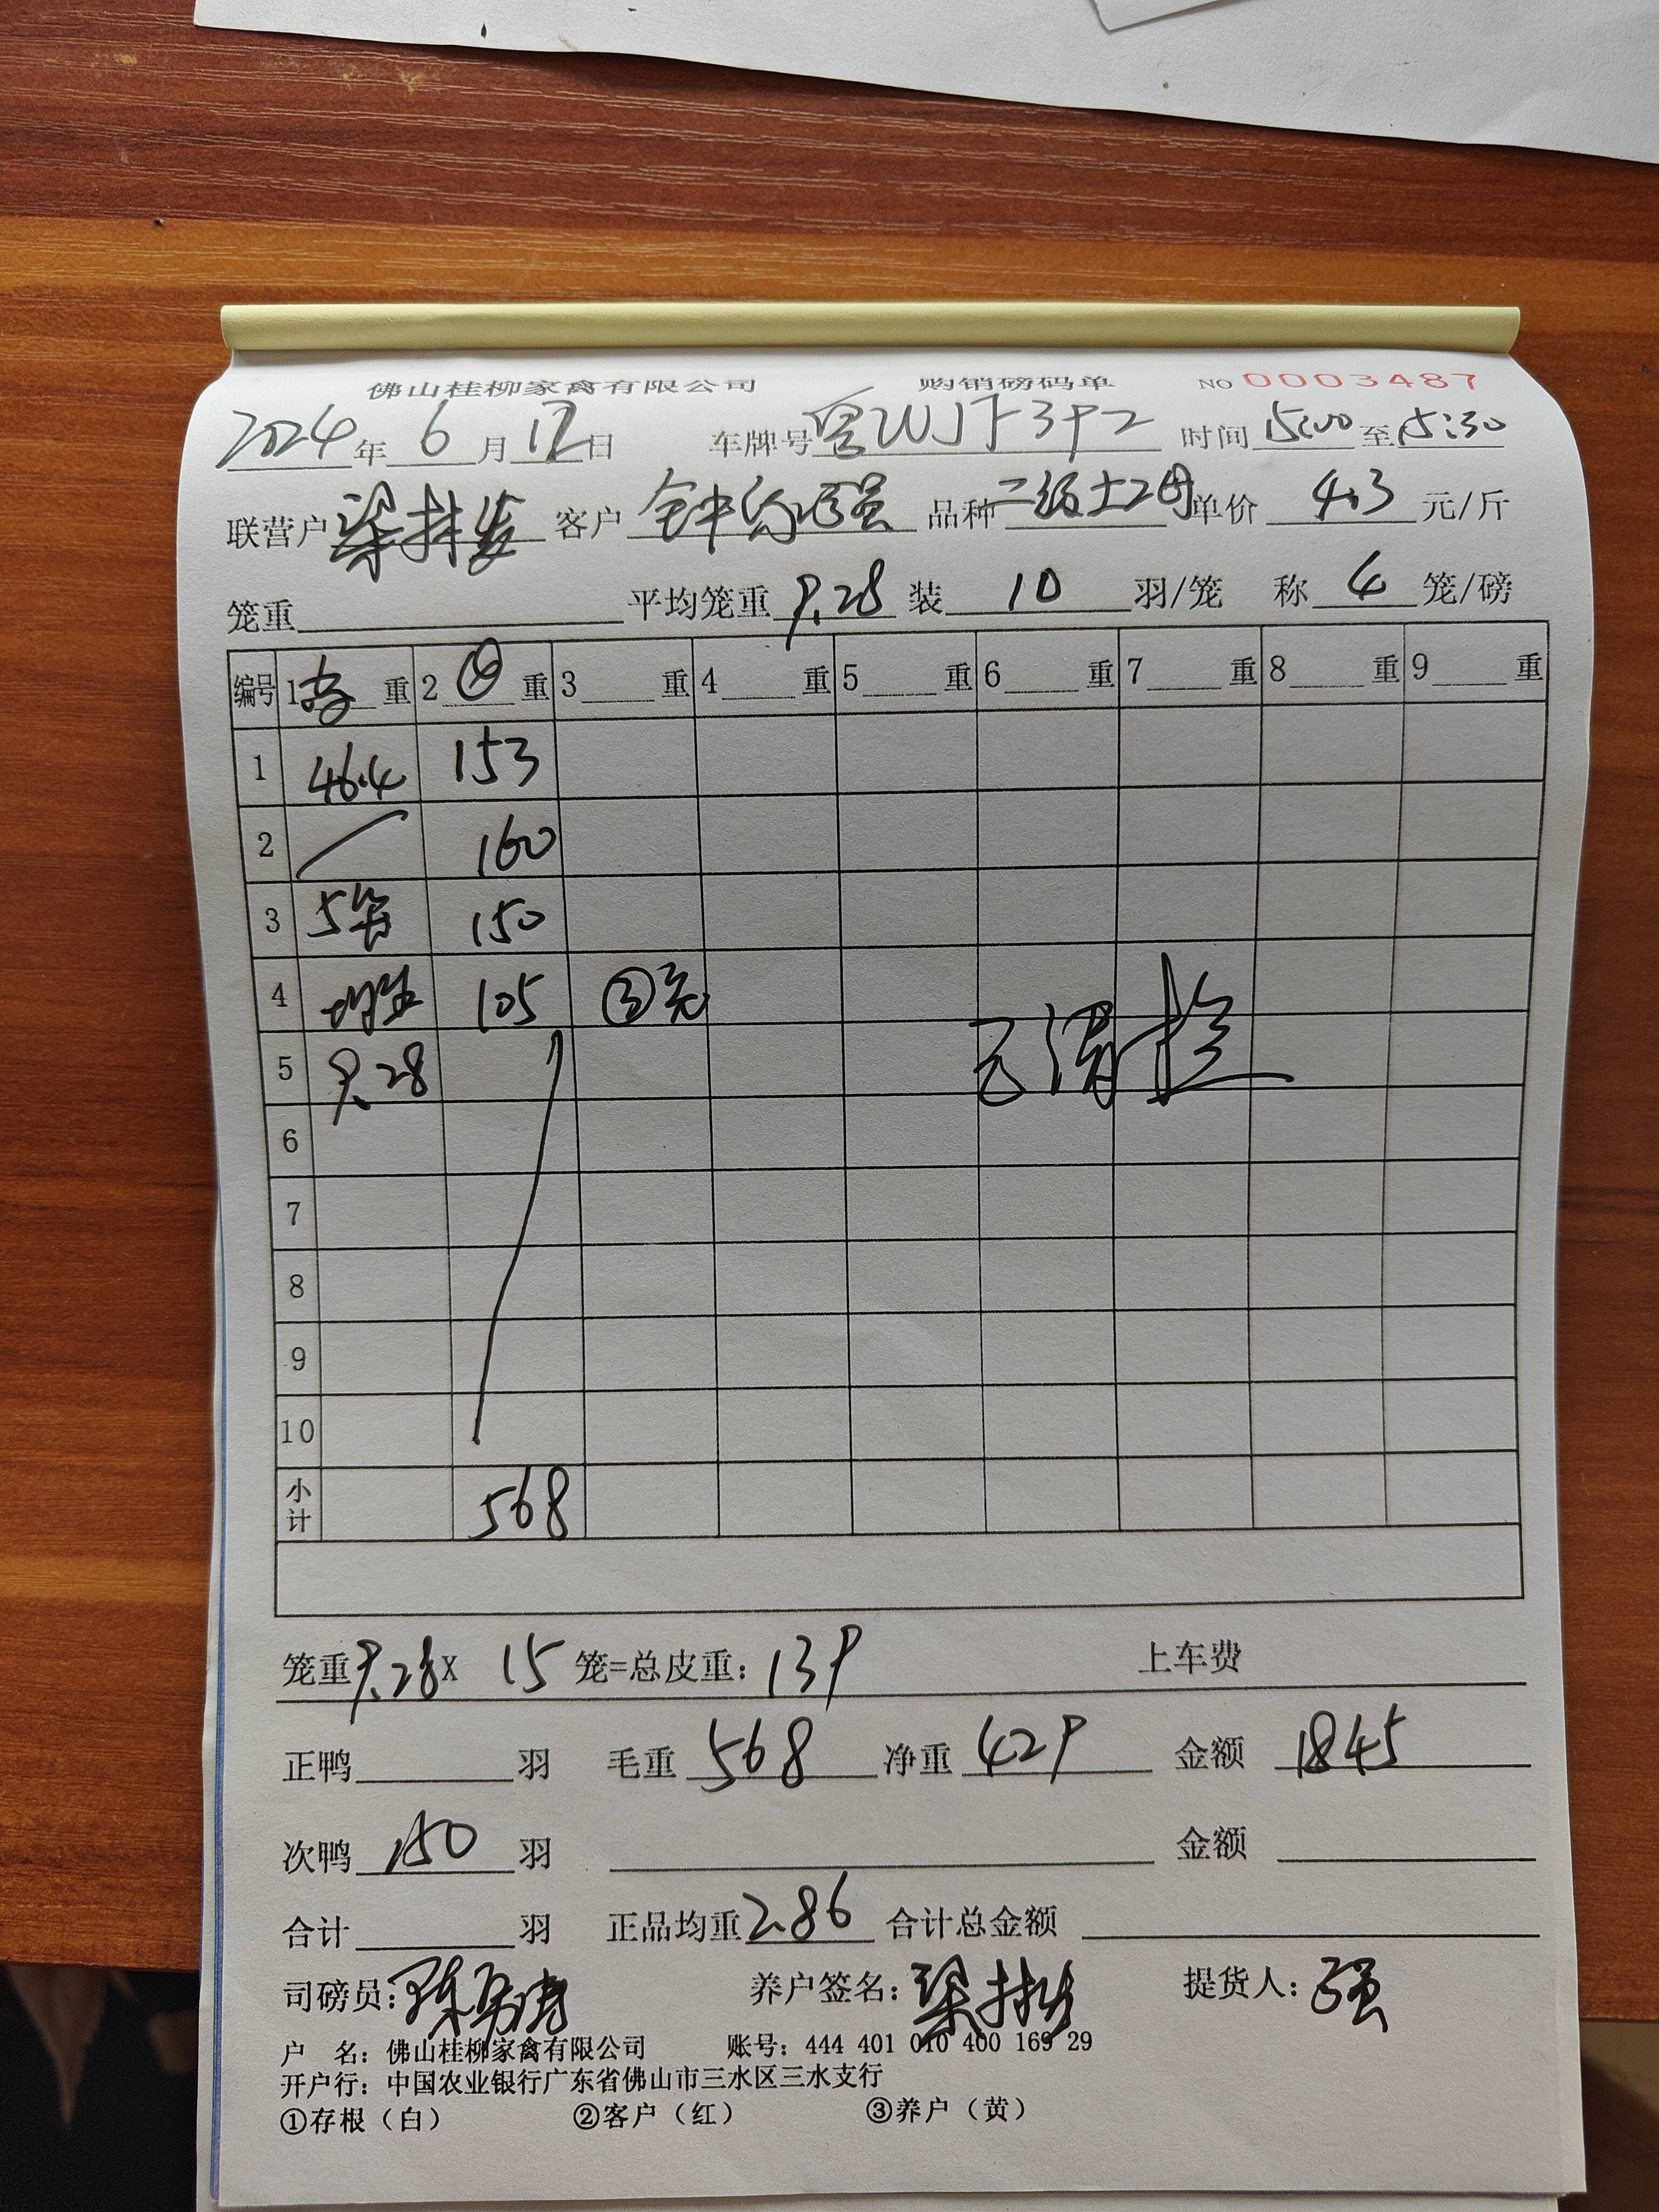 佛山桂柳家禽有限公司 购销磅码单 NO 0003487
2024年6月12日 车牌号粤WJF392 时间15:00至15:30
联营户梁 客户钟 强 品种二级土2母 单价4.3元/斤
笼重 平均笼重9.28 装10羽/笼 称4笼/磅
编号 1 重 2④重 3 重 4 重 5 重 6 重 7 重 8 重 9 重
1 46.4 153
2 160
3 5笼 150
4 105 ③完
5 9.28 已清
6
7
8
9
10
小计 568
笼重9.28X 15笼=总皮重:139 上车费
正鸭 羽 毛重568 净重429 金额1845
次鸭150羽 金额
合计 羽 正品均重2.86 合计总金额
司磅员:陈 养户签名:梁 提货人:强
户 名:佛山桂柳家禽有限公司 账号:444 401 010 400 169 29
开户行:中国农业银行广东省佛山市三水区三水支行
①存根(白) ②客户(红) ③养户(黄)